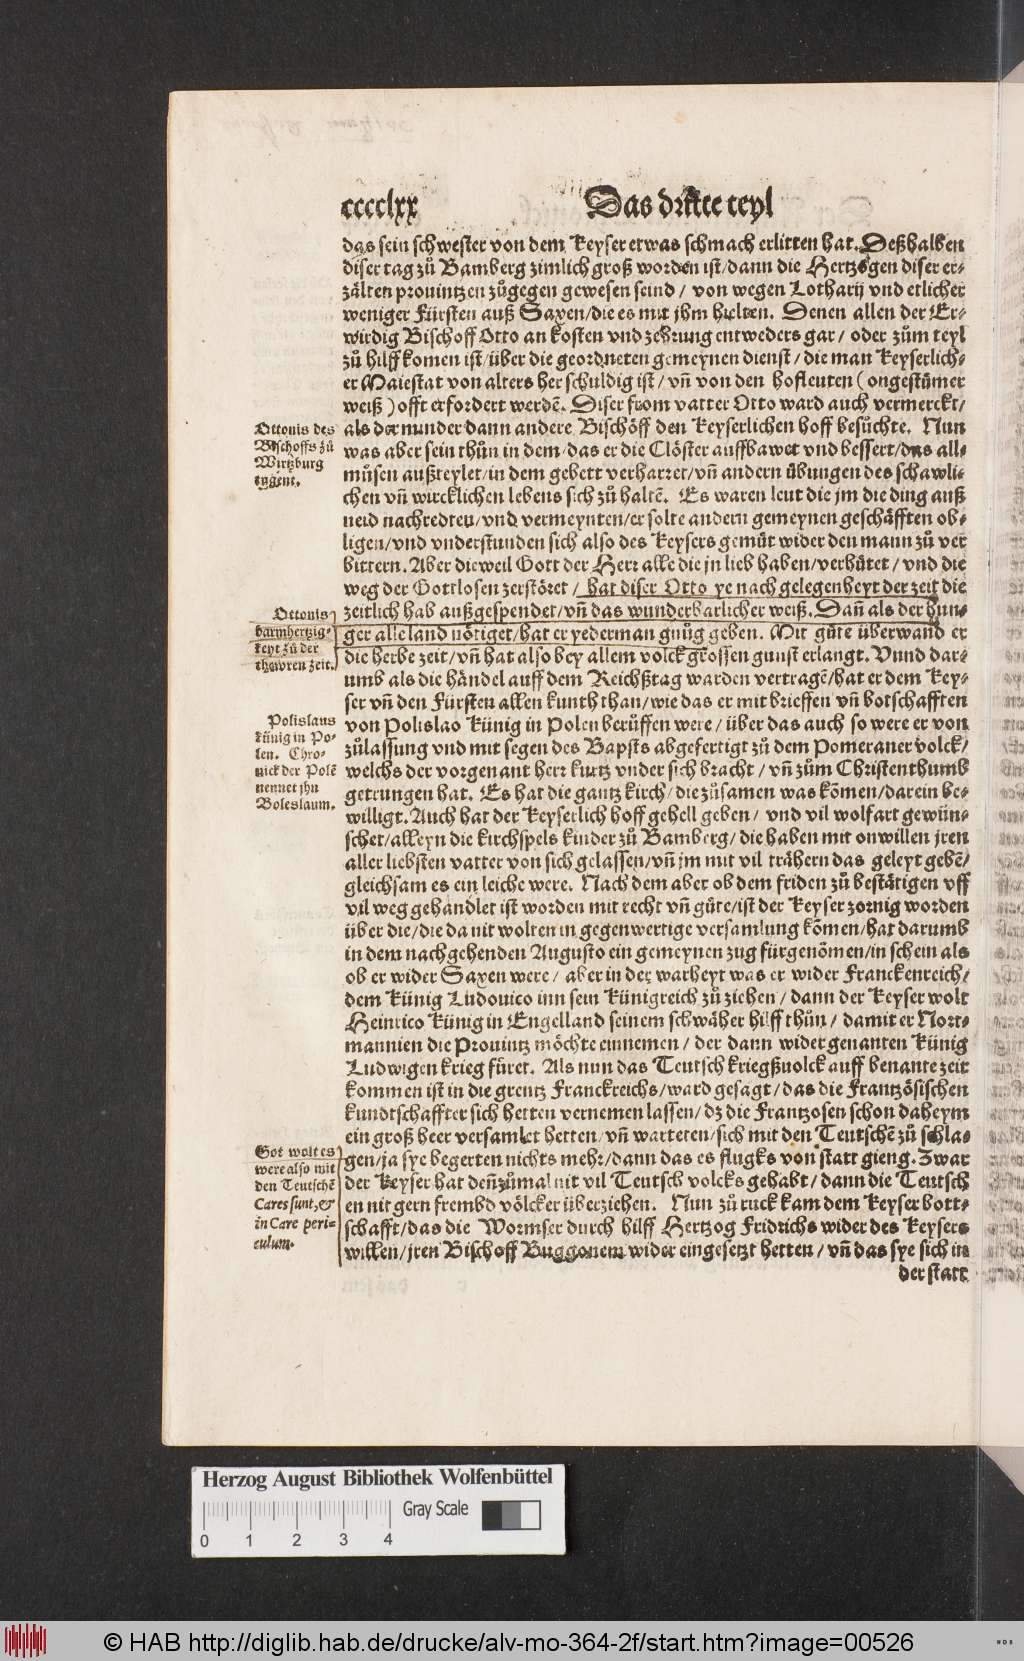 cccclxx Das dritte teyl
das sein schwester von dem Keyser etwas schmach erlitten hat. Deßhalben
diser tag zů Bamberg zimlich groß worden ist/dann die Hertzogen diser er-
zälten prouintzen zůgegen gewesen seind / von wegen Lotharij vnd etlicher
weniger Fürsten auß Saxen/die es mit jhm hielten. Denen allen der Er-
wirdig Bischoff Otto an kosten vnd zehrung entweders gar / oder zům teyl
zů hilff komen ist/über die geordneten gemeynen dienst / die man Keyserlich-
er Maiestat von alters her schuldig ist / vn̄ von den hofleuten (ongestümer
weiß) offt erfordert werdē. Diser from vatter Otto ward auch vermerckt/
als der minder dann andere Bischöff den Keyserlichen hoff besůchte. Nun
was aber sein thůn in dem/das er die Clöster auffbawet vnd bessert/das all-
můsen außteylet/in dem gebett verharret/vn̄ andern übungen des schawli-
chen vn̄ wircklichen lebens sich zů haltē. Es waren leut die jm die ding auß
neid nachredten/vnd vermeynten/er solte andern gemeynen geschäfften ob-
ligen/vnd vnderstunden sich also des Keysers gemüt wider den mann zů ver
bittern. Aber dieweil Gott der Herr alle die jn lieb haben/verhütet / vnd die
weg der Gottlosen zerstöret / hat diser Otto ye nach gelegenheyt der zeit die
zeitlich hab außgespendet/vn̄ das wunderbarlicher weiß. Dan̄ als der hun-
ger alle land nötiget/hat er yederman gnůg geben. Mit güte überwand er
die herbe zeit/vn̄ hat also bey allem volck grossen gunst erlangt. Vnnd dar-
umb als die händel auff dem Reichßtag warden vertragē/hat er dem Key-
ser vn̄ den Fürsten allen kunth than/wie das er mit brieffen vn̄ botschafften
von Polislao Künig in Polen berůffen were / über das auch so were er von
zůlassung vnd mit segen des Bapsts abgefertigt zů dem Pomeraner volck/
welchs der vorgenant herr kurtz vnder sich bracht / vn̄ zům Christenthumb
getrungen hat. Es hat die gantz kirch/die zůsamen was kōmen/darein be-
willigt. Auch hat der Keyserlich hoff gehell geben / vnd vil wolfart gewün-
schet/alleyn die kirchspels kinder zů Bamberg/die haben mit onwillen jren
aller liebsten vatter von sich gelassen/vn̄ jm mit vil trähern das geleyt gebē/
gleichsam es ein leiche were. Nach dem aber ob dem friden zů bestätigen vff
vil weg gehandlet ist worden mit recht vn̄ güte/ist der Keyser zornig worden
über die/die da nit wolten in gegenwertige versamlung kōmen/hat darumb
in dem nachgehenden Augusto ein gemeynen zug fürgenōmen/in schein als
ob er wider Saxen were / aber in der warheyt was er wider Franckenreich/
dem Künig Ludouico inn sein Künigreich zů ziehen / dann der Keyser wolt
Heinrico Künig in Engelland seinem schwäher hilff thůn / damit er Nort-
mannien die Prouintz möchte einnemen / der dann wider genanten Künig
Ludwigen krieg füret. Als nun das Teutsch kriegßuolck auff benante zeit
kommen ist in die grentz Franckreichs/ward gesagt/das die Frantzösischen
kundtschaffter sich hetten vernemen lassen/dz die Frantzosen schon daheym
ein groß heer versamlet hetten/vn̄ warteten/sich mit den Teutschē zů schla-
gen/ja sye begerten nichts mehr/dann das es flugks von statt gieng. Zwar
der Keyser hat den̄zůmal nit vil Teutsch volcks gehabt/dann die Teutsch
en nit gern frembd völcker überziehen. Nun zů ruck kam dem Keyser bott-
schafft/das die Wormser durch hilff Hertzog Fridrichs wider des Keysers
willen/jren Bischoff Buggonem wider eingesetzt hetten/vn̄ das sye sich in
der statt
Ottonis des
Bischoffs zů
Wirtzburg
tugent.
Ottonis
barmhertzig-
keyt zů der
thewren zeit.
Polislaus
künig in Po-
len. Chro-
nick der Polē
nennet jhn
Boleslaum.
Got wolt es
were also mit
den Teutschē
Cares sunt, &
in Care peri-
culum.
Herzog August Bibliothek Wolfenbüttel
Gray Scale
0 1 2 3 4
© HAB http://diglib.hab.de/drucke/alv-mo-364-2f/start.htm?image=00526